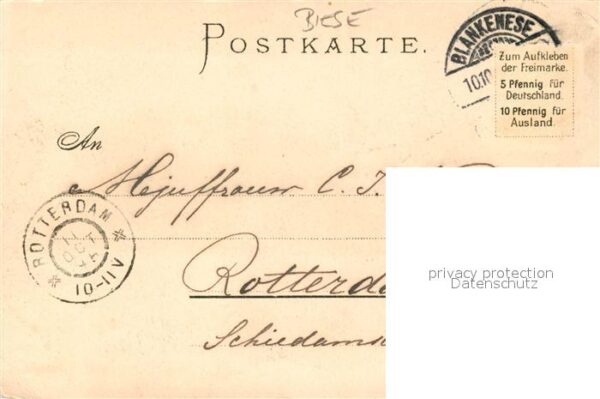 BIESE
POSTKARTE.
BLANKENESE
10.10
Zum Aufkleben
der Freimarke.
5 Pfennig für
Deutschland.
10 Pfennig für
Ausland.
An
Mejuffrouw C. J.
ROTTERDAM
OCT
10-11V
Rotterda
Schiedams
privacy protection
Datenschutz